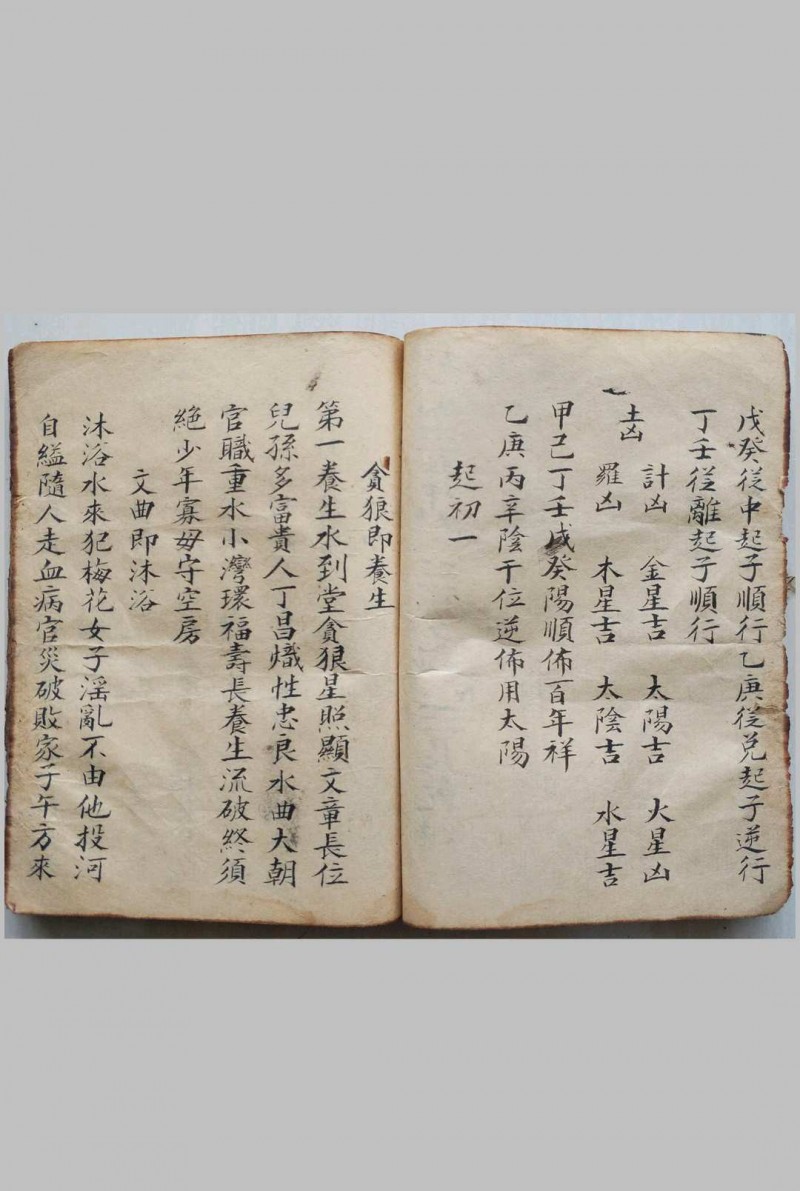 戊癸従中起子順行乙庚従兑起子逆行
丁壬従離起子順行
計凶 金星吉 太陽吉 火星凶
土凶
羅凶 木星吉 太陰吉 水星吉
甲己丁壬戊癸陽順佈百年祥
乙庚丙辛陰干位逆佈用太陽
起初一
貪狼即養生
第一養生水到堂貪狼星照顯文章長位
兒孫多富貴人丁昌熾性忠良水曲大朝
官職重水小灣環福壽長養生流破終須
絶少年寡母守空房
文曲即沐浴
沐浴水來犯梅花女子淫亂不由他投河
自縊隨人走血病官災破敗家子午方來